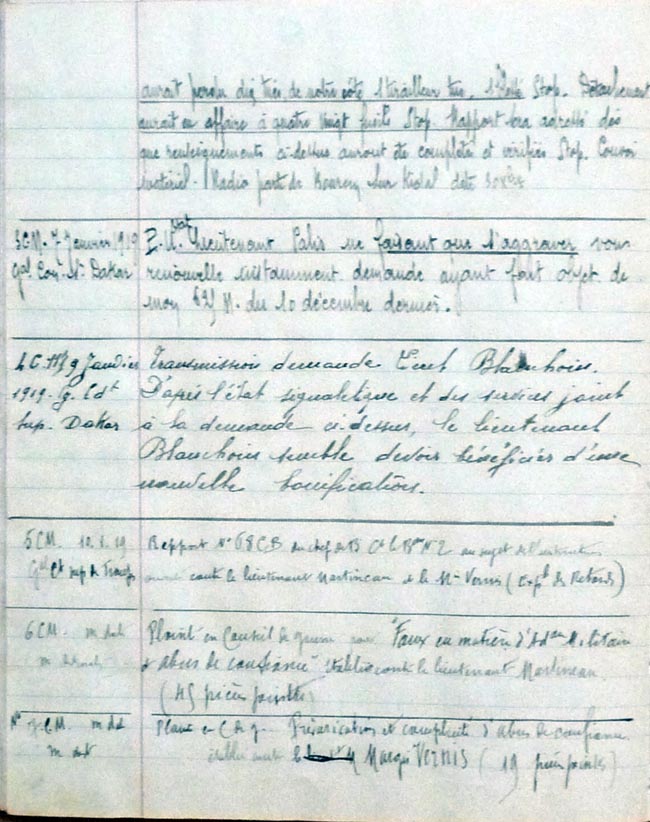 aurait perdu dix tués de notre côté 1 tirailleur tué, 1 blessé Stop. Détachement
aurait eu affaire à quatre vingt fusils Stop. Rapport sera adressé dès
que renseignements ci-dessus auront été complétés et vérifiés Stop. Convoi
matériel - Radio parti de Bourem sur Kidal date
3 C.M. 7 Janvier 1919
Gal Dakar
Etat Lieutenant Palis ne faisant que s'aggraver vous
renouvelle instamment demande ayant fait objet de
mon M. du 10 décembre dernier.
9 Janvier
1919. G. Cdt
Sup. Dakar
Transmission demande Lieut Blanchoin.
D'après l'état signalétique et des services joint
à la demande ci-dessus, le lieutenant
Blanchoin semble devoir bénéficier d'une
nouvelle bonification.
5 CM. 10.1.19
Gal Ct sup des Troupes
Rapport N° 68 CB du chef de B Ct le Bon N° 2 au sujet de l'instruction
contre le lieutenant Martineau et le Vernis
6 CM. m dat
m
Plainte en Conseil de guerre pour "Faux en matière d'Adon Militaire
& abus de confiance" établie contre le lieutenant Martineau.
(45 pièces jointes)
N° 7 CM. m dat
m dat
Plainte en C de g. Prévarication et complicité d'abus de confiance
établie contre le Vernis (19 pièces jointes)